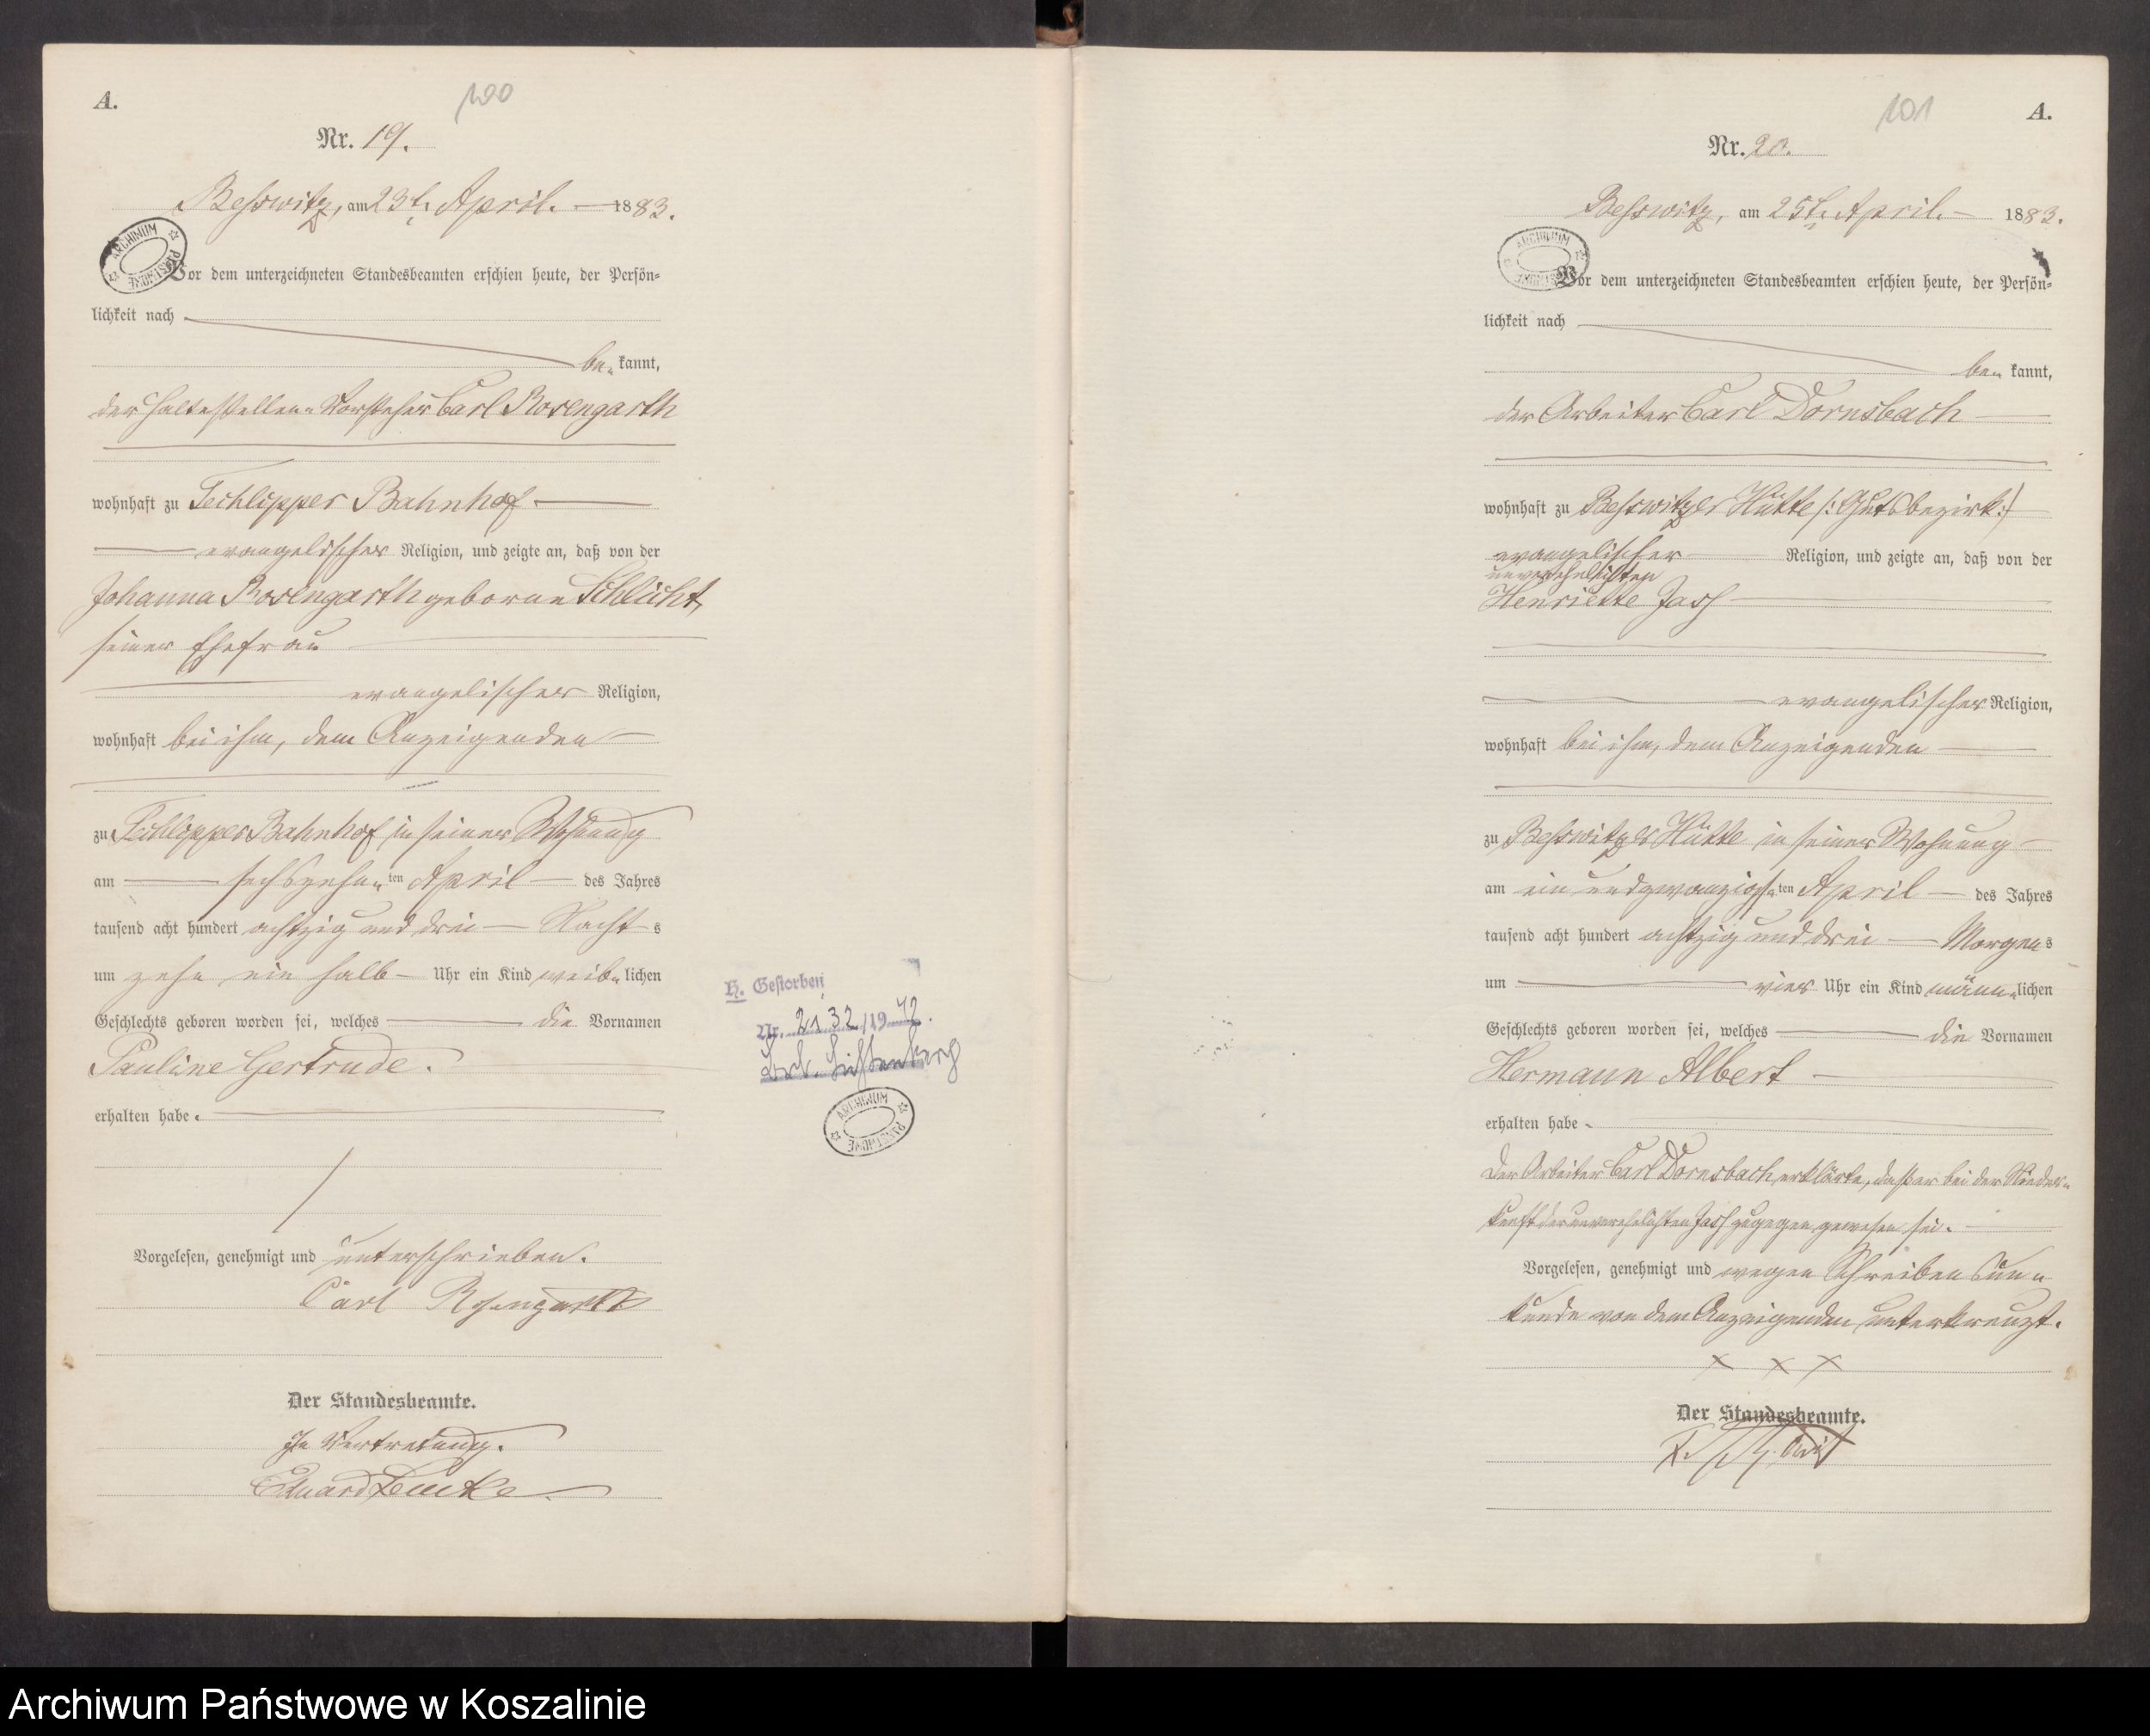 A.
100
Nr. 19.
Besswitz, am 23t. April. 1883.
ARCHIWUM PAŃSTWOWE
Vor dem unterzeichneten Standesbeamten erschien heute, der Persön=
lichkeit nach
be= kannt,
der Haltestellen=Vorsteher Carl Rosengarth
wohnhaft zu Techlipper Bahnhof
evangelischer Religion, und zeigte an, daß von der
Johanna Rosengarth geborne Schlicht,
seiner Ehefrau
evangelischer Religion,
wohnhaft bei ihm, dem Anzeigenden
zu Techlipper Bahnhof in seiner Wohnung
am sechszehn=ten April des Jahres
tausend acht hundert achtzig und drei Nachts
um zehn ein halb Uhr ein Kind weib=lichen
Geschlechts geboren worden sei, welches die Vornamen
Pauline Gertrude.
erhalten habe.
Vorgelesen, genehmigt und unterschrieben.
Carl Rosengarth
Der Standesbeamte.
In Vertretung.
Eduard Lemke
H. Gestorben
Nr. 2132/1942.
Lichtenberg
ARCHIWUM PAŃSTWOWE
101
A.
Nr. 20.
Besswitz, am 25t. April. 1883.
ARCHIWUM PAŃSTWOWE
Vor dem unterzeichneten Standesbeamten erschien heute, der Persön=
lichkeit nach
be= kannt,
der Arbeiter Carl Dornsbach
wohnhaft zu Besswitzer Hütte /:Gutsbezirk:/
evangelischer Religion, und zeigte an, daß von der
unverehelichten
Henriette Jass
evangelischer Religion,
wohnhaft bei ihm, dem Anzeigenden
zu Besswitzer Hütte in seiner Wohnung
am ein und zwanzigs=ten April des Jahres
tausend acht hundert achtzig und drei Morgens
um vier Uhr ein Kind männ=lichen
Geschlechts geboren worden sei, welches die Vornamen
Hermann Albert
erhalten habe.
Der Arbeiter Carl Dornsbach erklärte, daß er bei der Nieder=
kunft der unverehelichten Jass zugegen gewesen sei.
Vorgelesen, genehmigt und wegen Schreibens Un=
kunde von dem Anzeigenden unterkreuzt.
x x x
Der Standesbeamte.
Archiwum Państwowe w Koszalinie